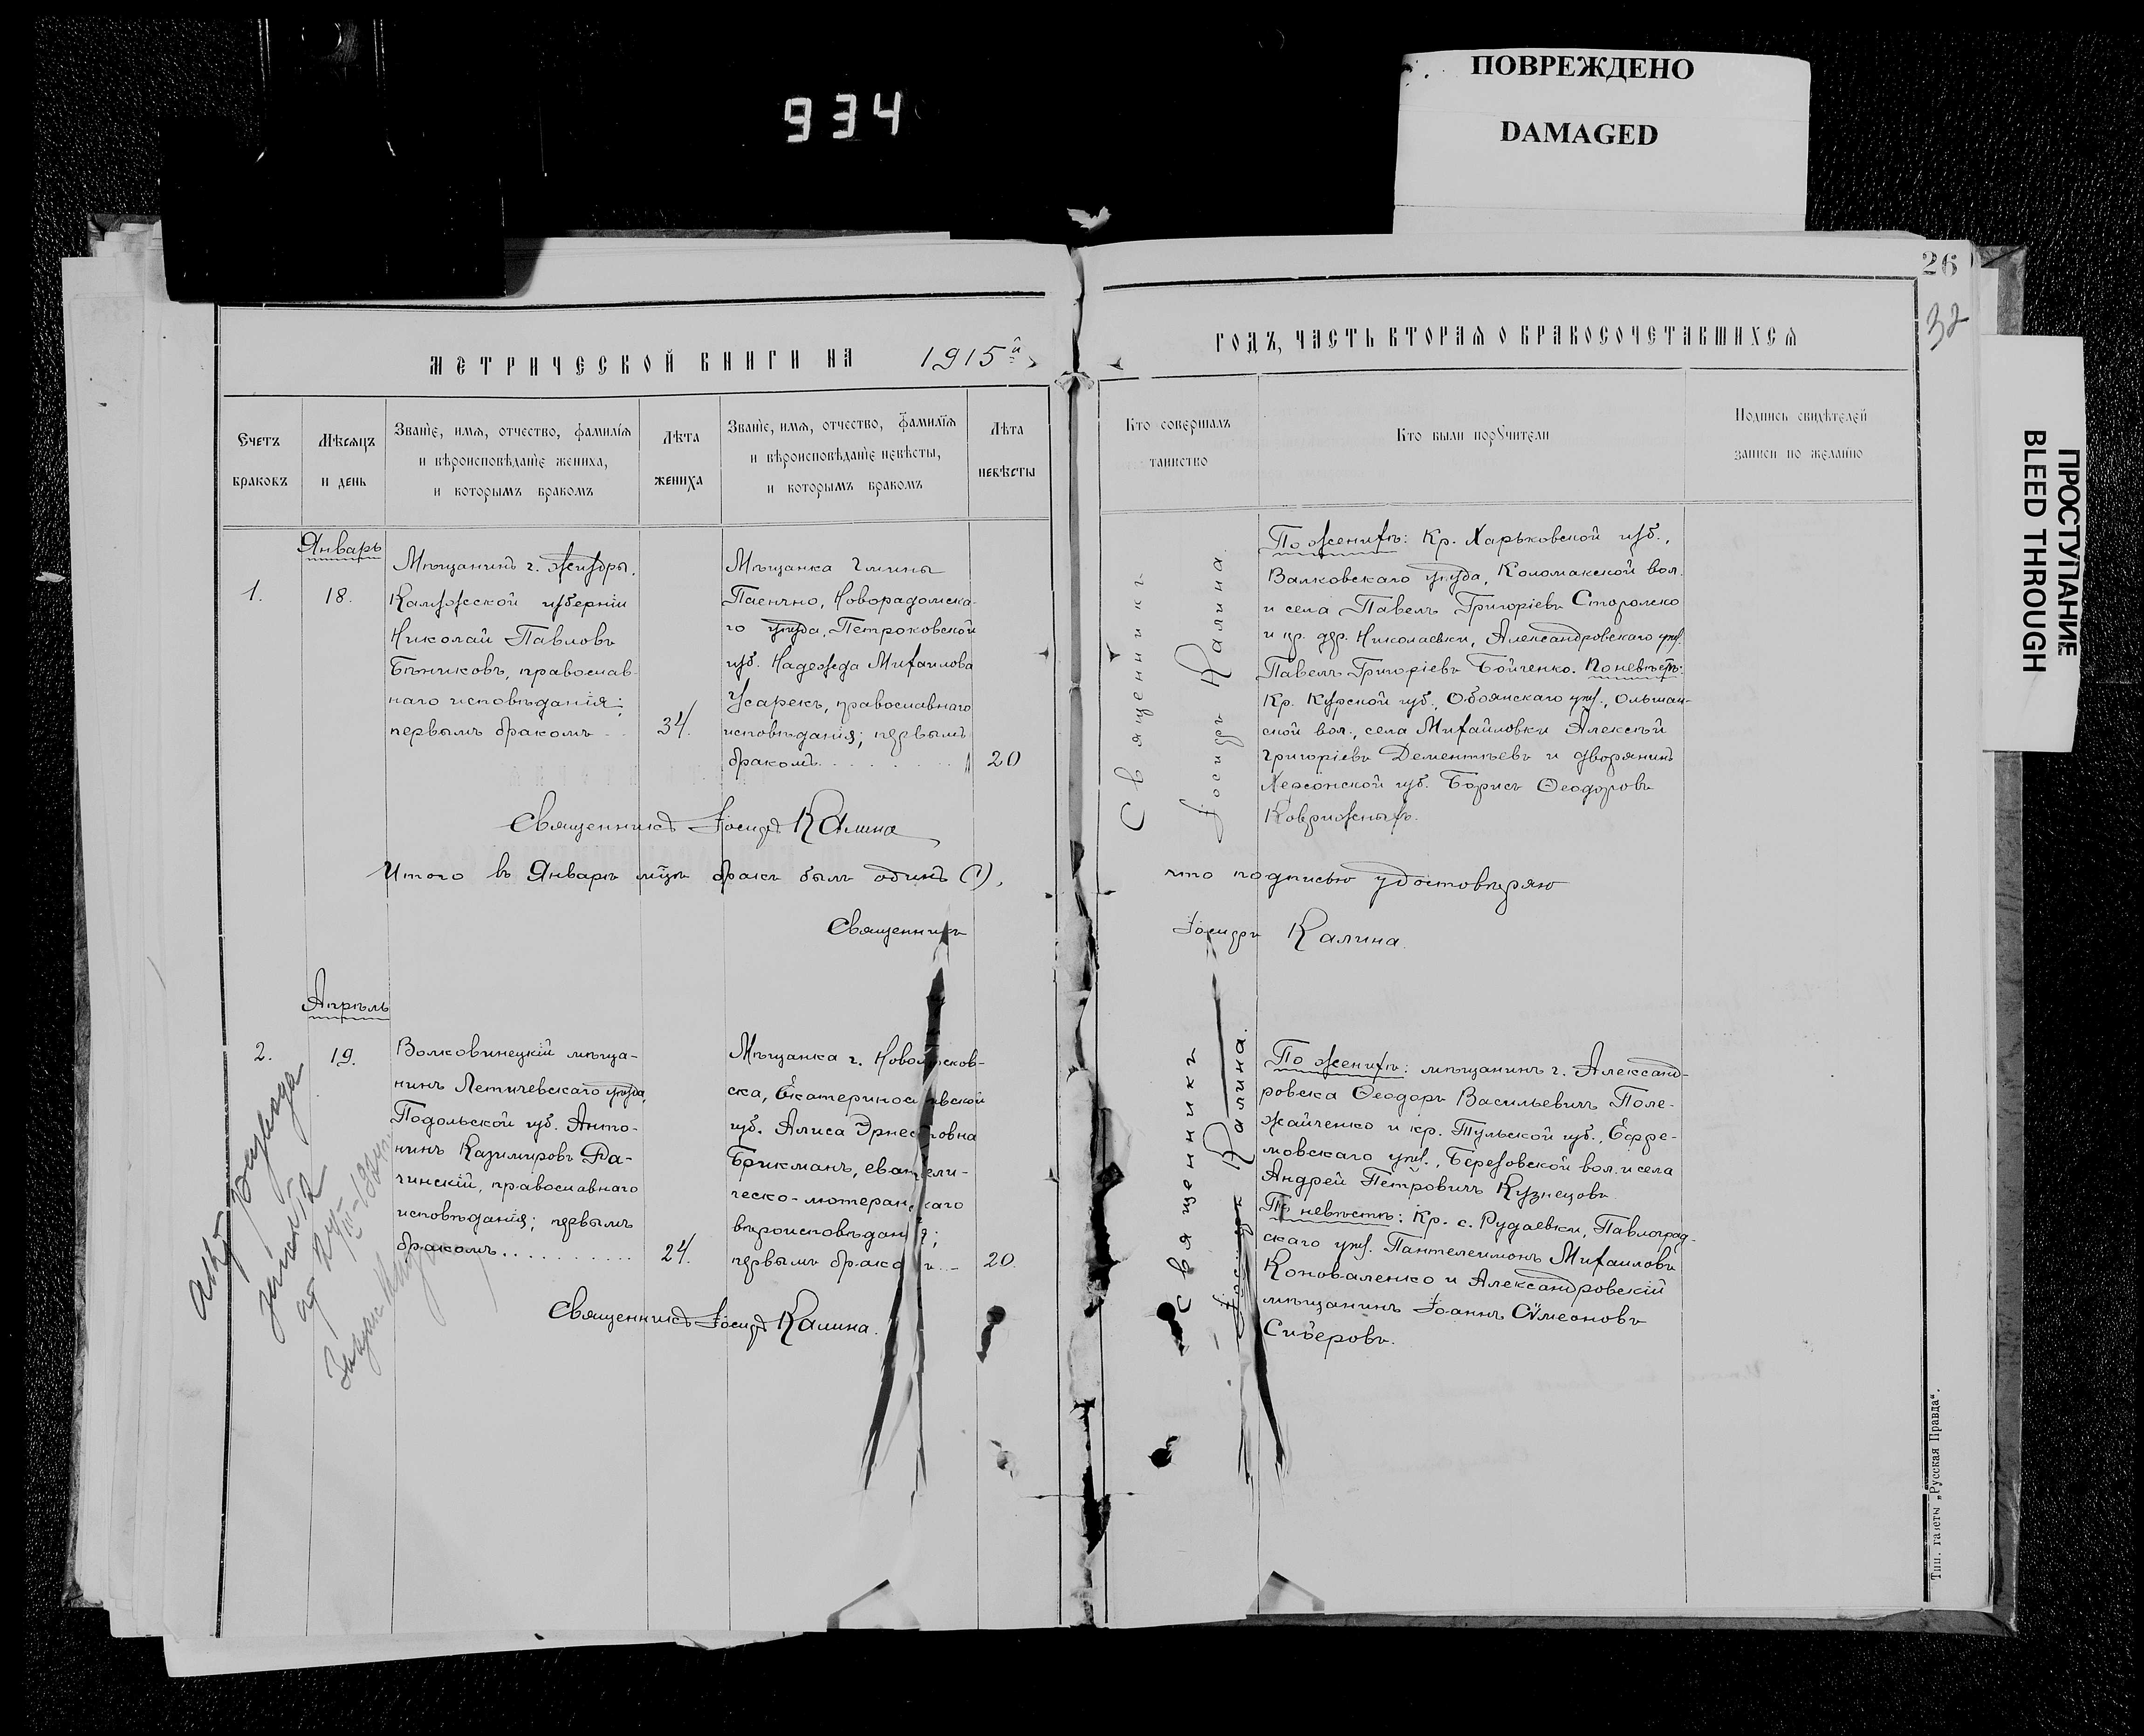 934
ПОВРЕЖДЕНО
DAMAGED
ПРОСТУПАНИЕ
BLEED THROUGH
26
32
МЕТРИЧЕСКОЙ КНИГИ НА 1915й
Счетъ
браковъ
Мѣсяцъ
и день
Званіе, имя, отчество, фамилія
и вѣроисповѣданіе жениха,
и которымъ бракомъ
Лѣта
жениха
Званіе, имя, отчество, фамилія
и вѣроисповѣданіе невѣсты,
и которымъ бракомъ
Лѣта
невѣсты
Январь
1.
18.
Мѣщанинъ г. Жиздры,
Калужской губерніи
Николай Павловъ
Бѣниковъ, православ-
наго исповѣданія;
первымъ бракомъ
34.
Мѣщанка гмины
Паенчно, Новорадомска-
го уѣзда, Петроковской
губ. Надежда Михаилова
Усарекъ, православнаго
исповѣданія; первымъ
бракомъ.........
20
Священникъ Іосифъ Калина
Итого въ Январѣ мцѣ бракъ былъ одинъ (1),
Священникъ
Апрѣль
2.
19.
Волковинецкій мѣща-
нинъ Летичевскаго уѣзда,
Подольской губ. Анто-
нинъ Казимировъ
чинскій, православнаго
исповѣданія; первымъ
бракомъ..........
24.
Мѣщанка г. Новомосков-
ска, Екатеринославской
губ. Алиса Эрнестовна
Брикманъ, евангели-
ческо-лютеранскаго
вѣроисповѣданія;
первымъ бракомъ
20.
Священникъ Іосифъ Калина.
ГОДЪ, ЧАСТЬ ВТОРАЯ О БРАКОСОЧЕТАВШИХСЯ
Кто совершалъ
таинство
Кто были поручители
Подпись свидѣтелей
записи по желанію
Священникъ
Іосифъ Калина.
По женихѣ: Кр. Харьковской губ.,
Валковскаго уѣзда, Коломакской вол.
и села Павелъ Григоріевъ
и кр. дер. Николаевки, Александровскаго уѣз.
Павелъ Григоріевъ Бойченко. По невѣстѣ:
Кр. Курской губ., Обоянскаго уѣз., Ольшан-
ской вол., села Михайловки Алексѣй
Григоріевъ Дементьевъ и дворянинъ
Херсонской губ. Борисъ Ѳеодоровъ
Коврижныхъ.
что подписью удостовѣряю
Іосифъ Калина.
Священникъ
Іосифъ Калина.
По женихѣ: мѣщанинъ г. Александ-
ровска Ѳеодоръ Васильевичъ Поле-
жайченко и кр. Тульской губ., Ефре-
мовскаго уѣз., Березовской вол. и села
Андрей Петровичъ Кузнецовъ.
По невѣстѣ: Кр. с. Рудаевки, Павлоград-
скаго уѣз. Пантелеимонъ Михаиловъ
Коноваленко и Александровскій
мѣщанинъ Іоаннъ Сѵмеоновъ
Сиверовъ.
Тип. газеты „Русская Правда“.